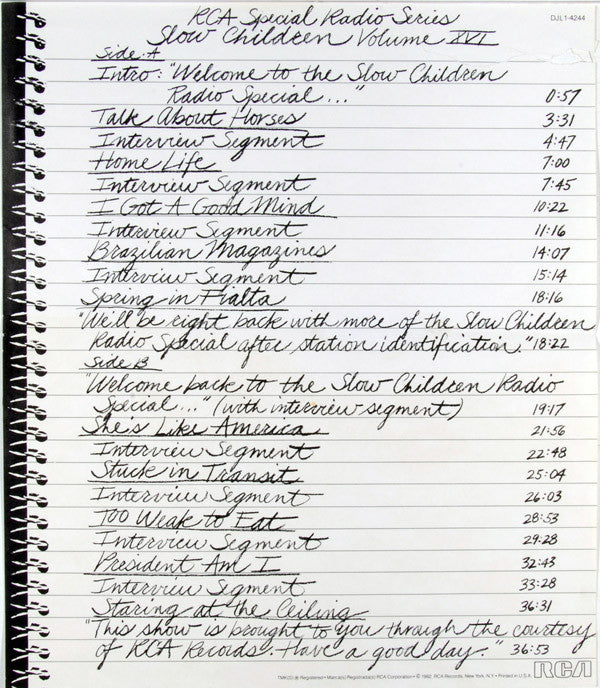 RCA Special Radio Series
DJL1-4244
Slow Children Volume XVI
Side A
Intro: "Welcome to the Slow Children
Radio Special..." 0:57
Talk About Horses 3:31
Interview Segment 4:47
Home Life 7:00
Interview Segment 7:45
I Got A Good Mind 10:22
Interview Segment 11:16
Brazilian Magazines 14:07
Interview Segment 15:14
Spring in Fialta 18:16
"We'll be right back with more of the Slow Children
Radio Special after station identification." 18:22
Side B
"Welcome back to the Slow Children Radio
Special..." (with interview segment) 19:17
She's Like America 21:56
Interview Segment 22:48
Stuck in Transit 25:04
Interview Segment 26:03
Too Weak to Eat 28:53
Interview Segment 29:28
President Am I 32:43
Interview Segment 33:28
Staring at the Ceiling 36:31
"This show is brought to you through the courtesy
of RCA Records. Have a good day." 36:53
RCA
TMK(S) ® Registered • Marca(s) Registrada(s) RCA Corporation • © 1982, RCA Records, New York, N.Y. • Printed in U.S.A.